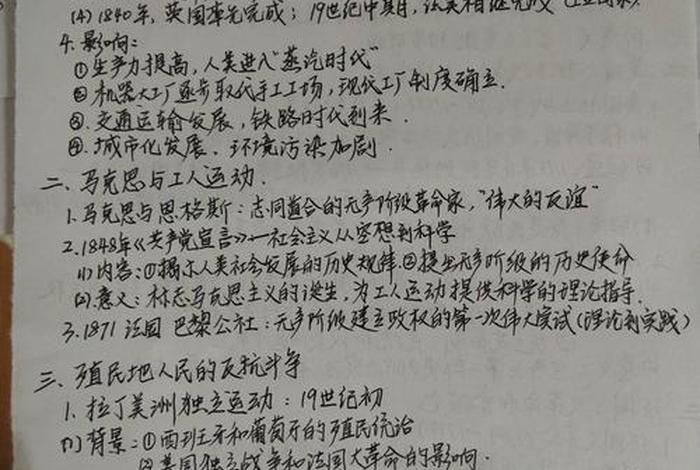 (4) 1840年,英国率先完成;19世纪中期,法美相继完成工业革命.
4.影响:
①生产力提高,人类进入"蒸汽时代"
②机器大工厂逐步取代手工工场,现代工厂制度确立.
③.交通运输发展,铁路时代到来.
④.城市化发展.环境污染加剧.
二、马克思与工人运动.
1.马克思与恩格斯:志同道合的无产阶级革命家,"伟大的友谊"
2.1848年《共产党宣言》—社会主义从空想到科学
(1)内容:①揭示人类社会发展的历史规律.②提出无产阶级的历史使命
(2).意义:标志马克思主义的诞生,为工人运动提供科学的理论指导.
3.1871 法国 巴黎公社:无产阶级建立政权的第一次伟大尝试(理论到实践)
三、殖民地人民的反抗斗争
1.拉丁美洲独立运动:19世纪初
(1)背景:①西班牙和葡萄牙的殖民统治
②美国独立战争和法国大革命的影响.